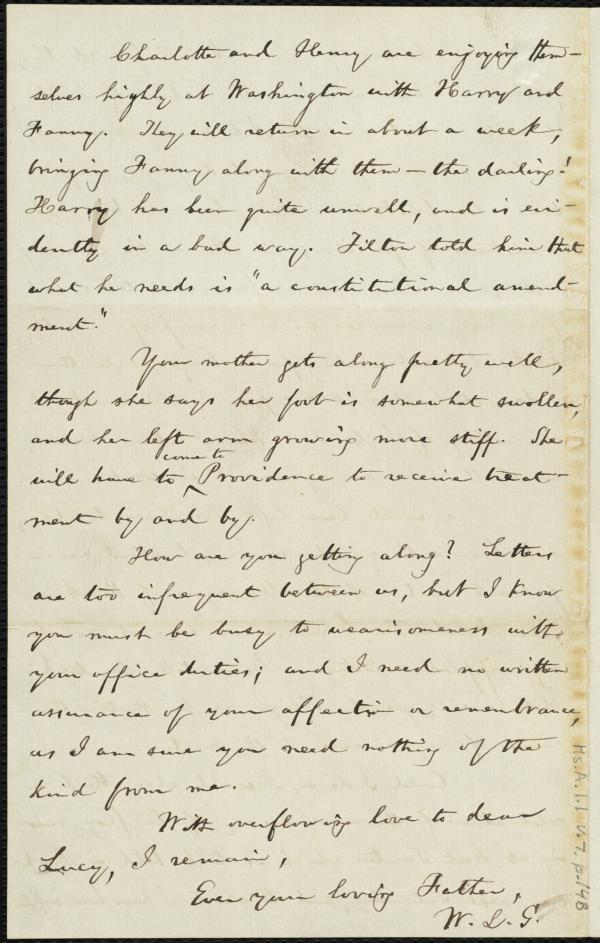 Charlotte and Henry are enjoying them-
selves highly at Washington with Harry and
Fanny. They will return in about a week,
bringing Fanny along with them — the darling!
Harry has been quite unwell, and is evi-
dently in a bad way. Tilton told him that
what he needs is "a constitutional amend-
ment."
Your mother gets along pretty well,
though she says her foot is somewhat swollen,
and her left arm growing more stiff. She
come to
will have to ‸ Providence to receive treat-
ment by and by.
How are you getting along? Letters
are too infrequent between us, but I know
you must be busy to wearisomeness with
your office duties; and I need no written
assurance of your affection or remembrance,
as I am sure you need nothing of the
kind from me.
With overflowing love to dear
Lucy, I remain,
Ever your loving Father,
W. L. G.
Ms.A.1.1 v.7, p.148